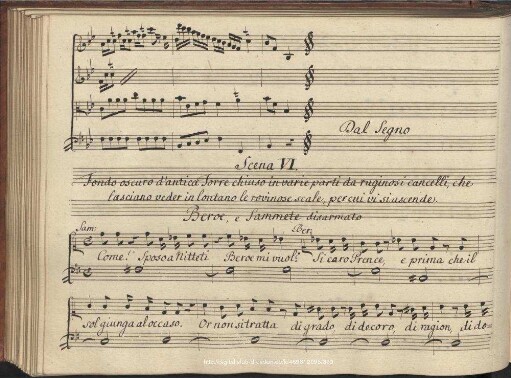 Dal Segno
Scena VI.
Fondo oscuro d'antica Torre chiuso in varie parti da ruginosi cancelli, che
lasciano veder in lontano le rovinose scale, per cui vi si ascende.
Beroe, e Sammete disarmato
Sam: Ber:
Come! Sposo a Nitteti Beroe mi vuol! Si caro Prence, e prima che il
sol giunga al occaso. Or non si tratta di grado, di decoro, di ragion, di do-